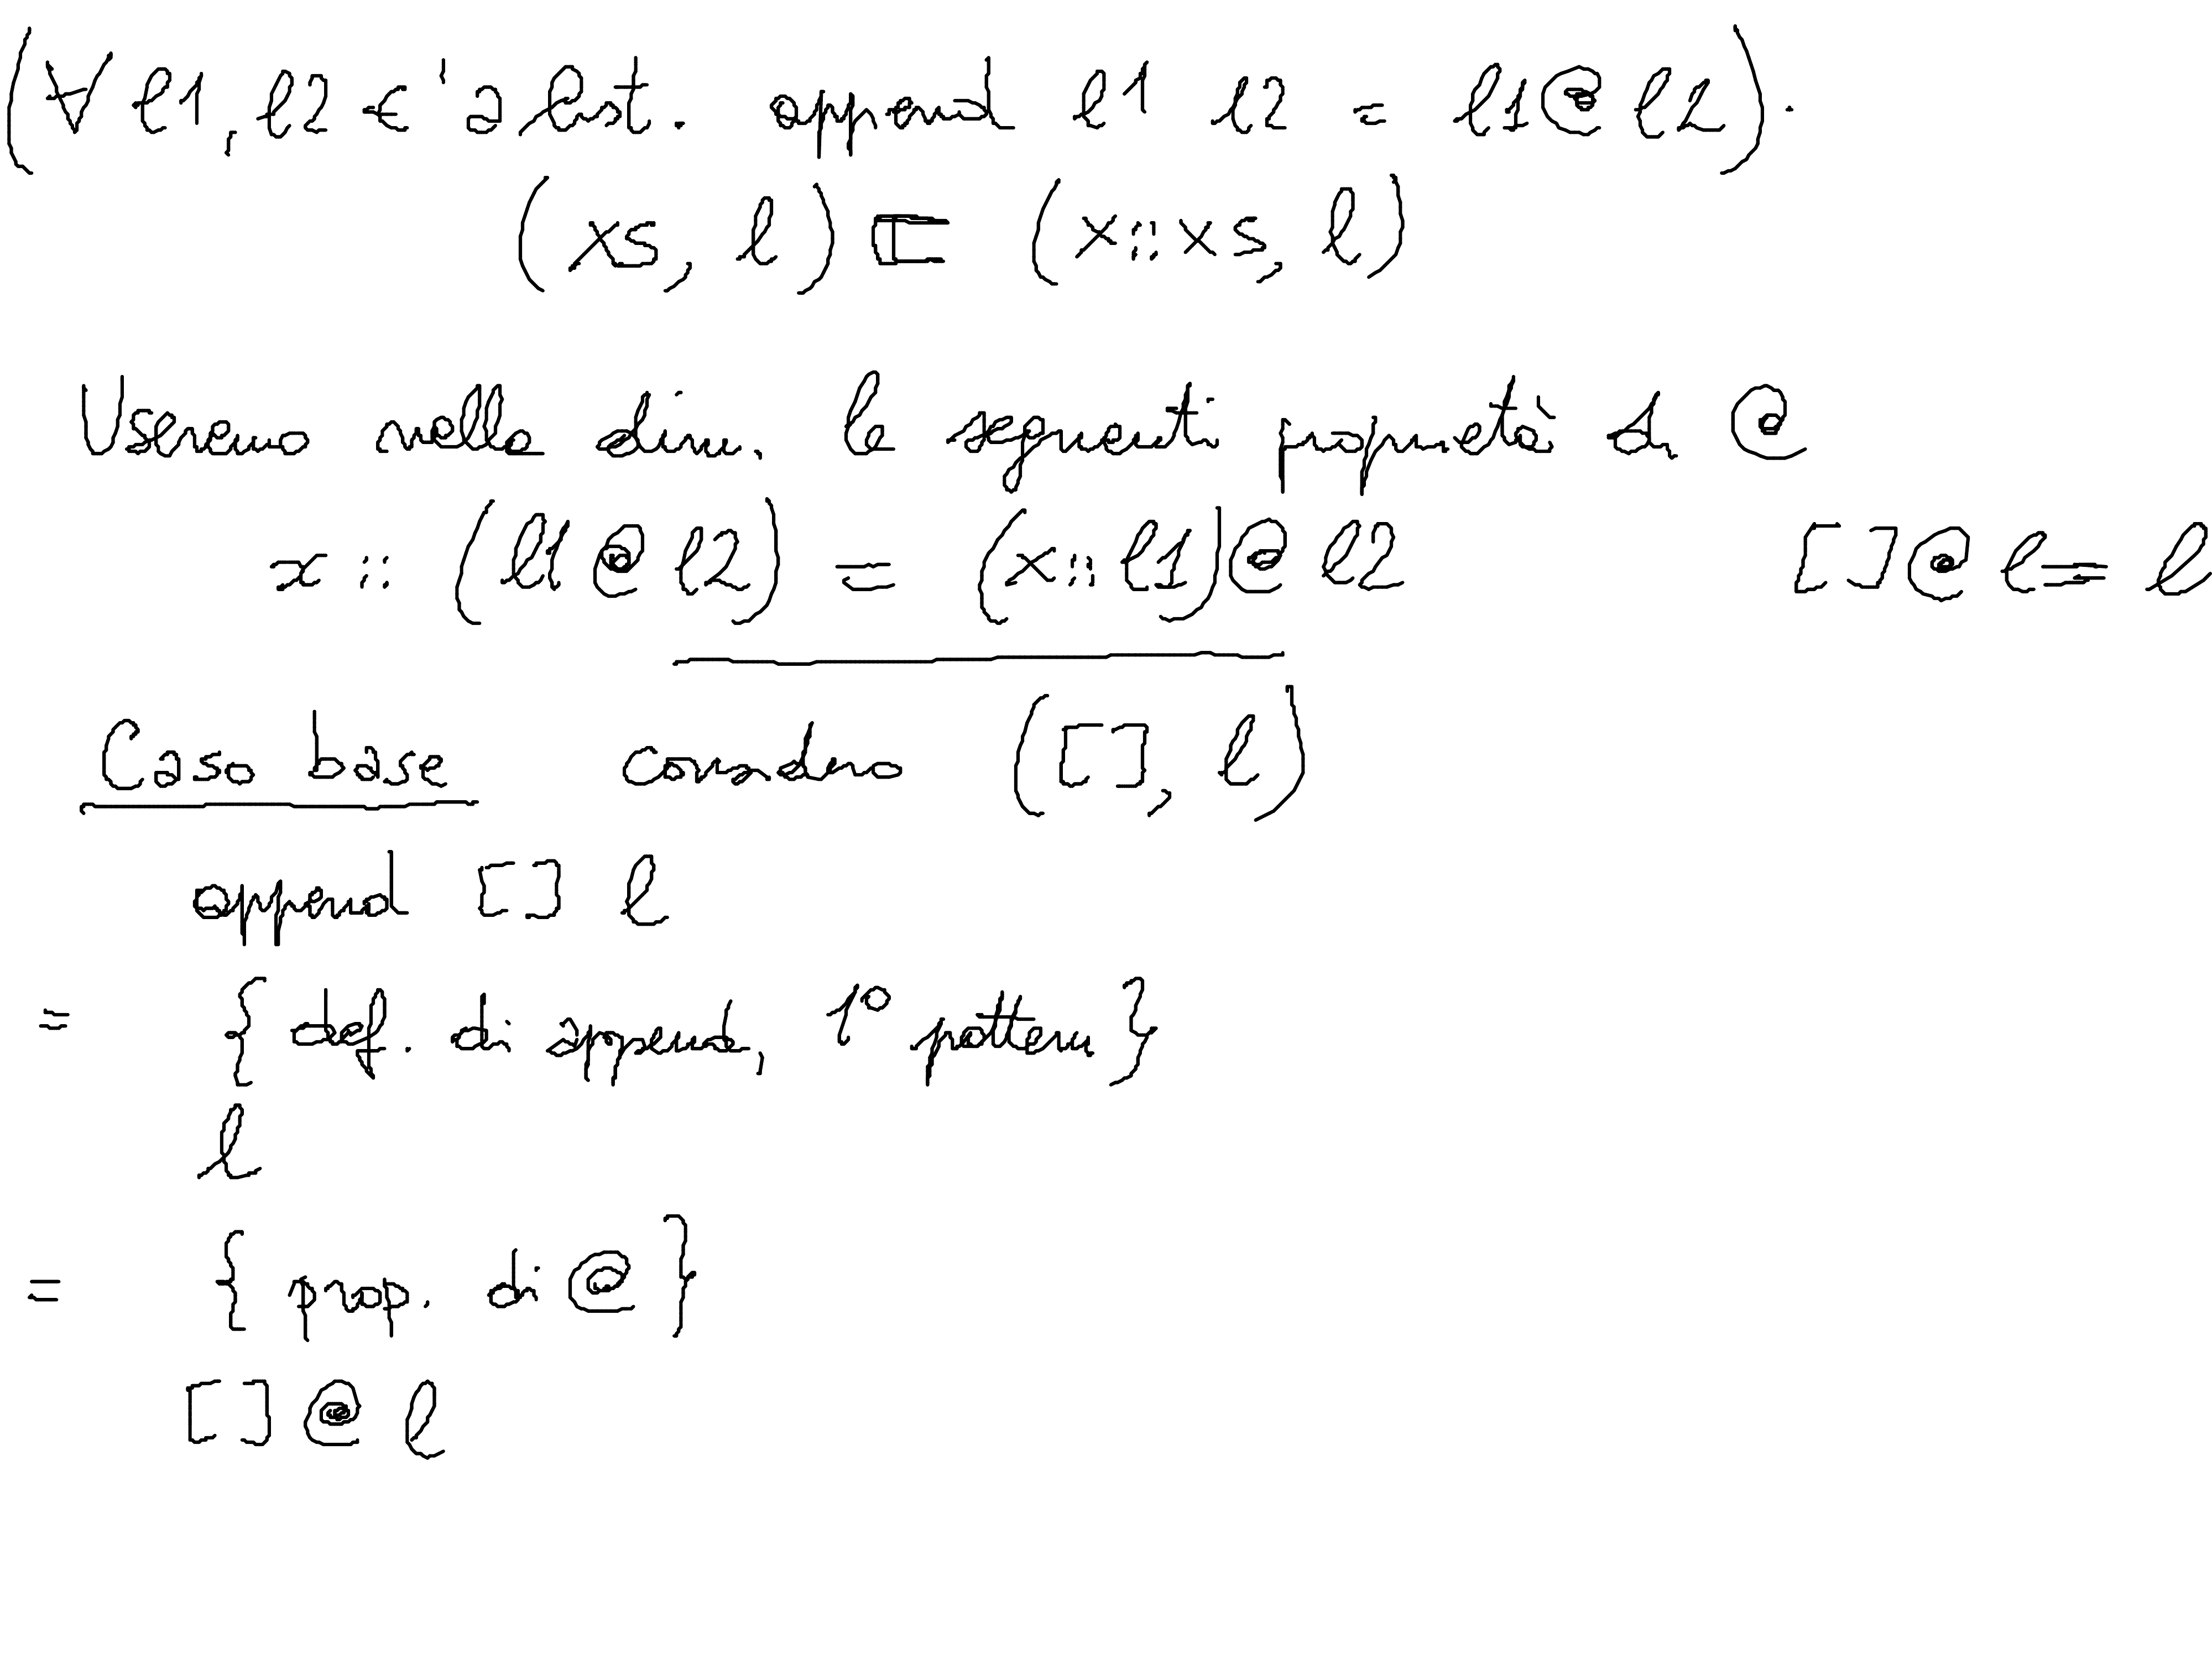 (∀ l1, l2 ∈ 'a list. append l1 l2 = l1@l2).
(xs, l) ⊏ (x::xs, l)
Useremo nella dim. le seguenti proprietà di @
x :: (l1 @ l2) = (x::l1)@ l2 []@ l = l
Caso base considero ([], l)
append [] l
= {def. di append, 1° pattern}
l
= { prop. di @ }
[] @ l